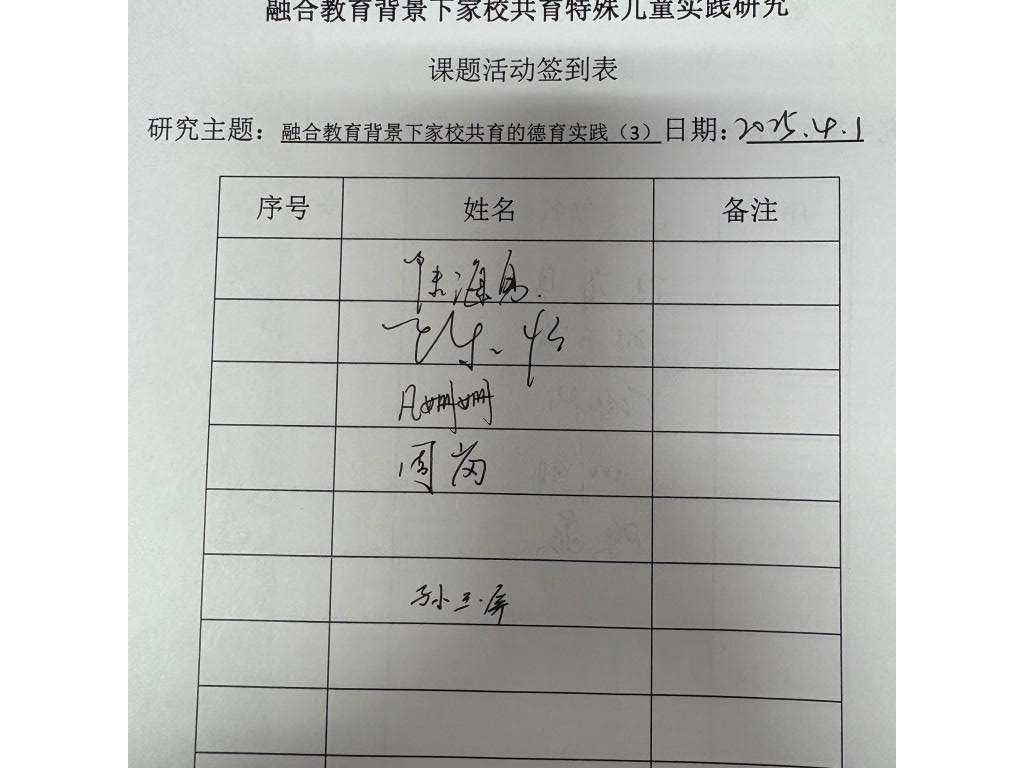 融合教育背景下家校共育特殊儿童实践研究
课题活动签到表
研究主题：融合教育背景下家校共育的德育实践（3）日期：2025.4.1
序号 姓名 备注
凡姗姗
周岗
孙兰屏